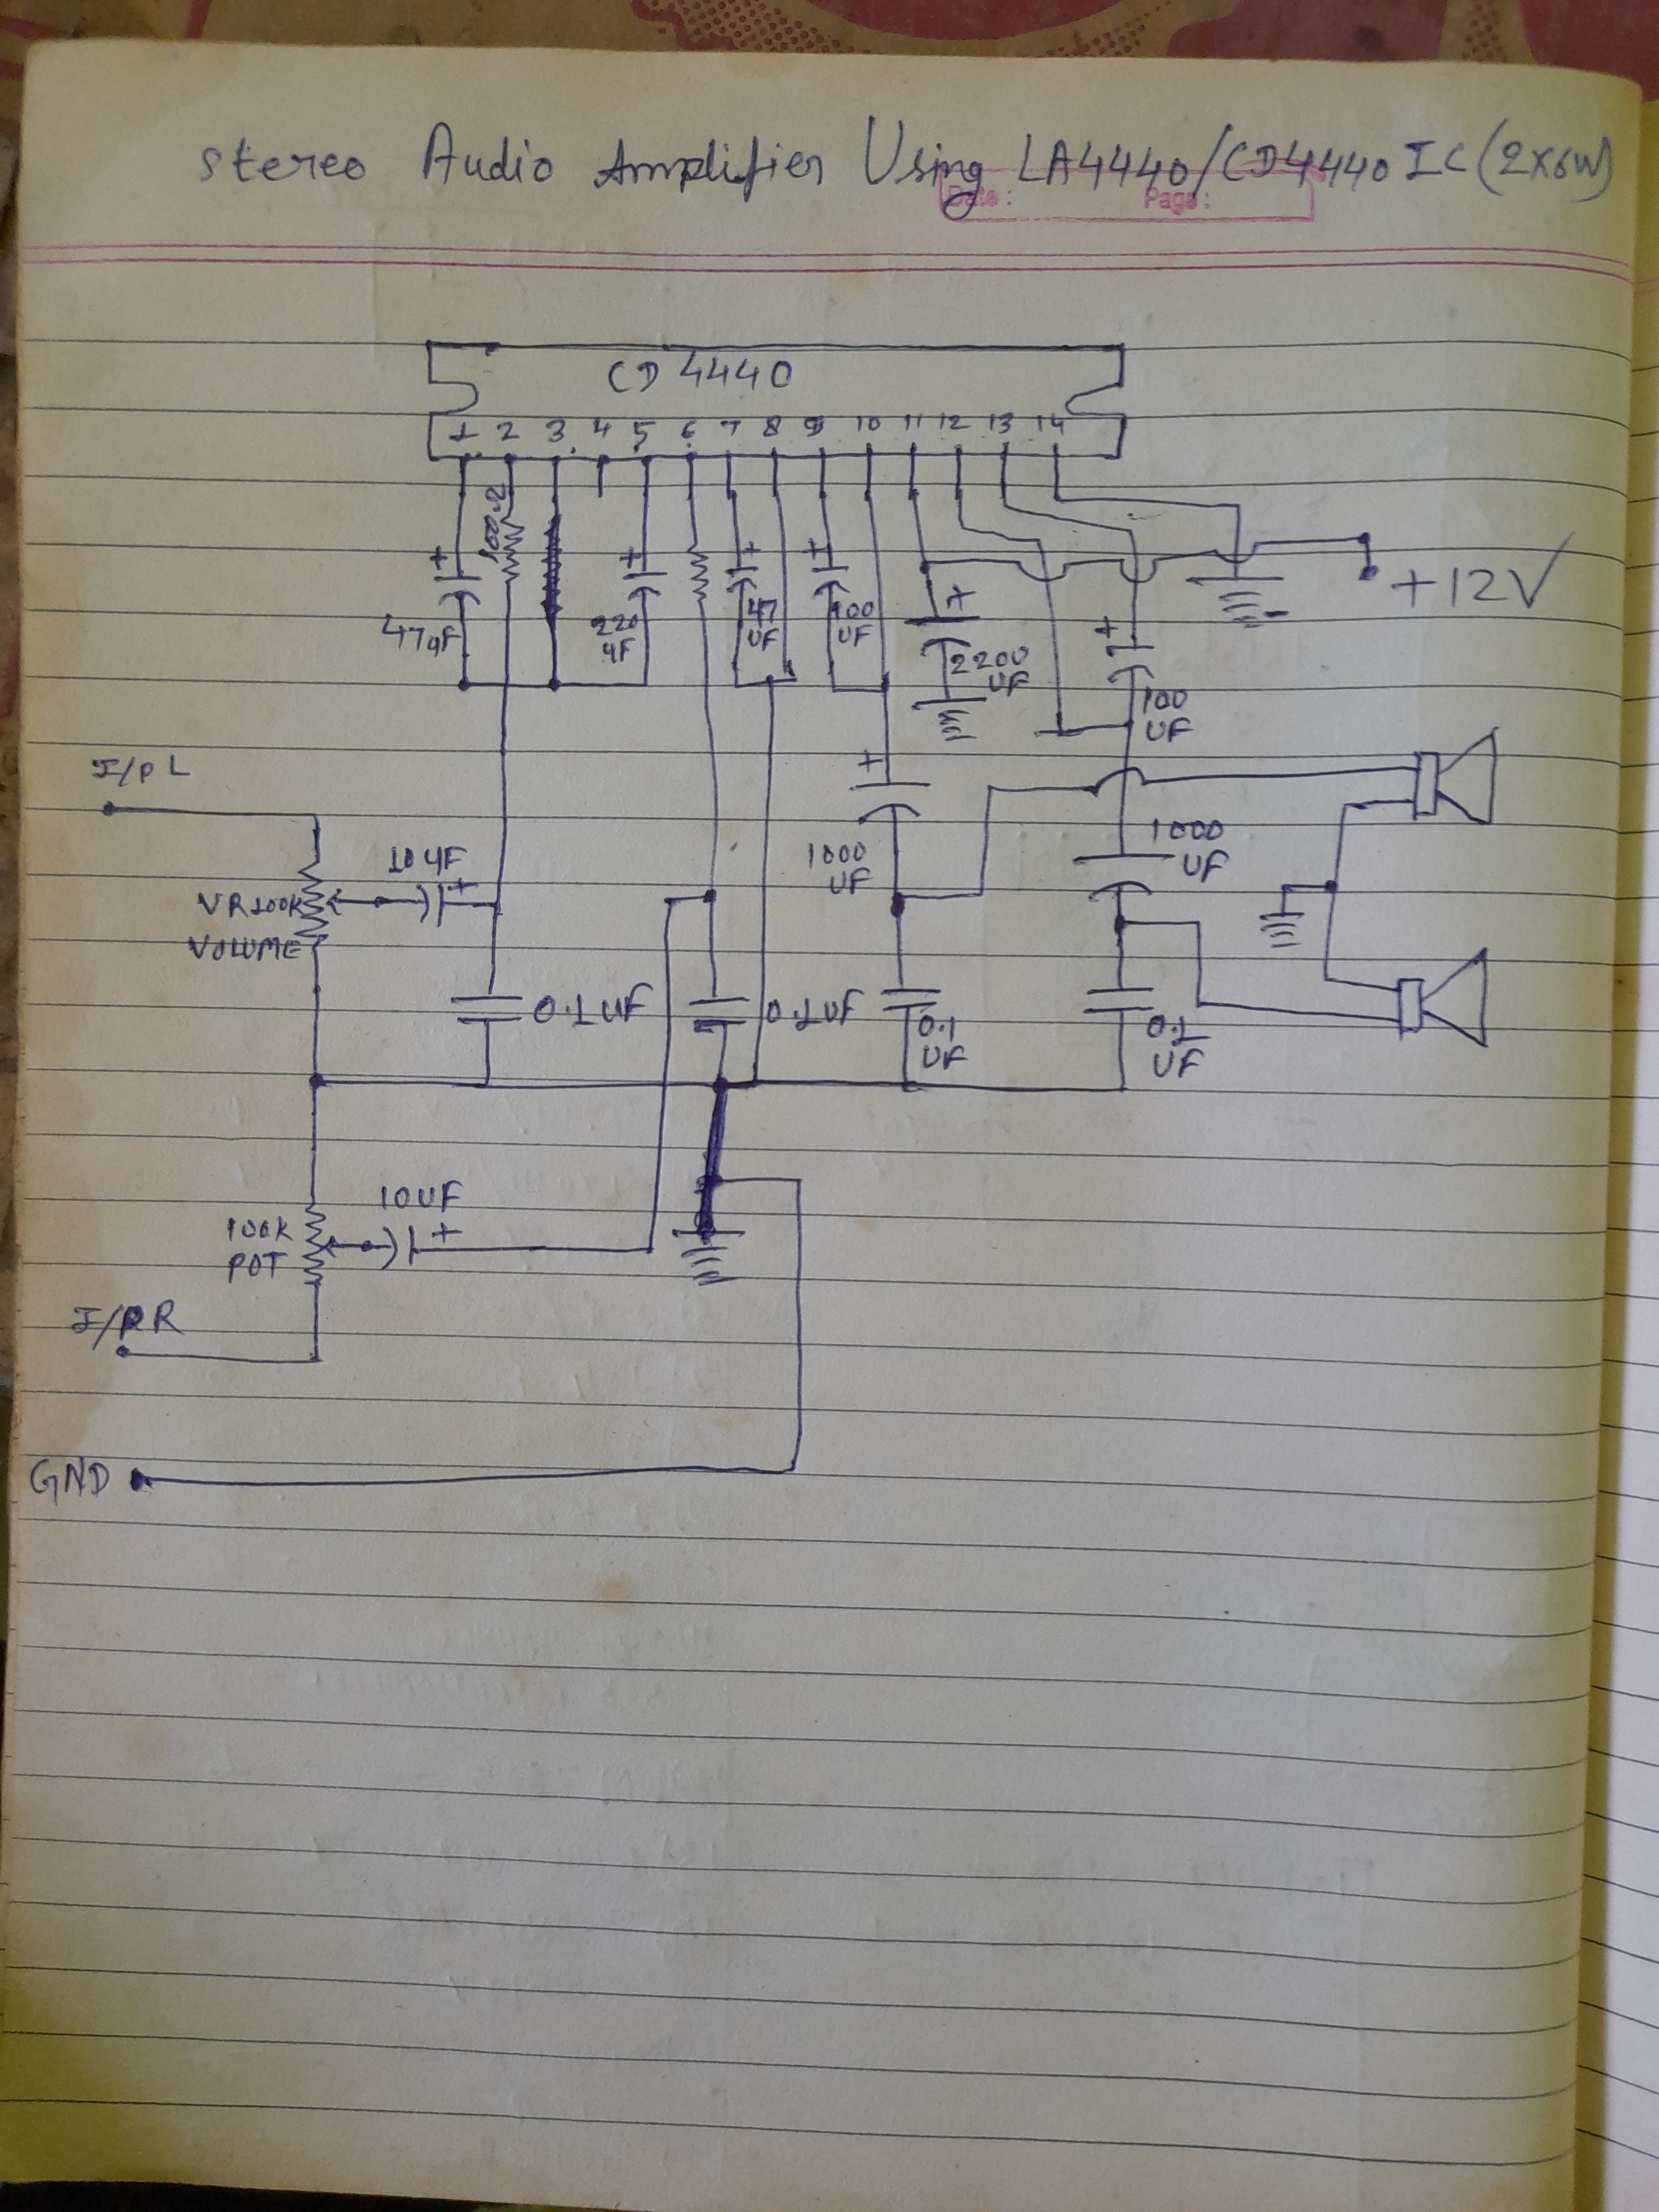 Stereo Audio Amplifier Using LA4440/CD4440 IC (2X6W)
Date: Page:
CD 4440
1 2 3 4 5 6 7 8 9 10 11 12 13 14
100Ω
+ + + + + +
+12V
47µF
220 µF
47 UF
100 UF
2200 UF
100 UF
I/P L
+
10µF
+
VR100K
VOLUME
1000 UF
1000 UF
0.1UF
0.1UF
0.1 UF
0.1 UF
10UF
+
100K
POT
I/P R
GND